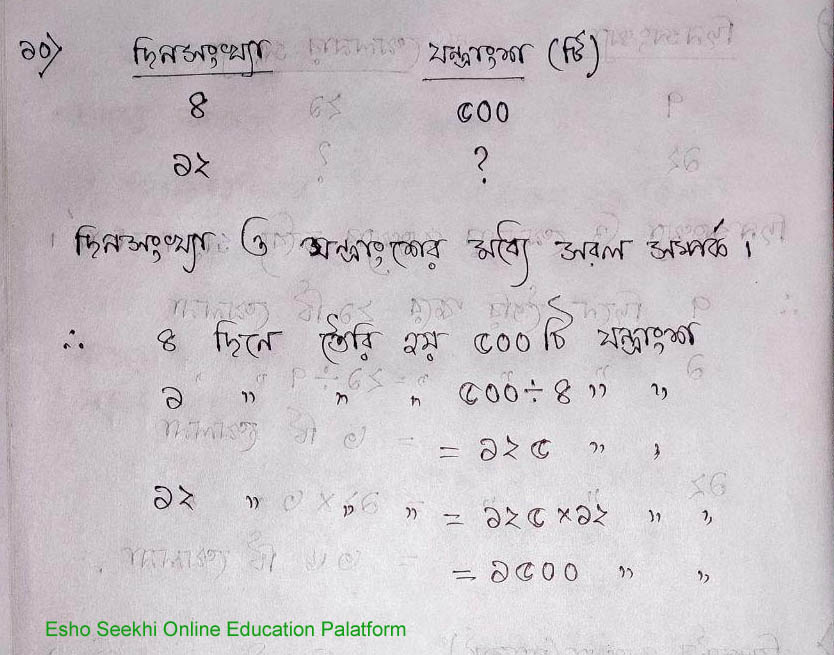 ১০) দিনসংখ্যা যন্ত্রাংশ (টি)
৪ ৫০০
১২ ?
দিনসংখ্যা ও যন্ত্রাংশের মধ্যে সরল সম্পর্ক।
∴ ৪ দিনে তৈরি হয় ৫০০ টি যন্ত্রাংশ
১ " " " ৫০০÷৪ " "
= ১২৫ " "
১২ " " " = ১২৫×১২ " "
= ১৫০০ " "
Esho Seekhi Online Education Palatform